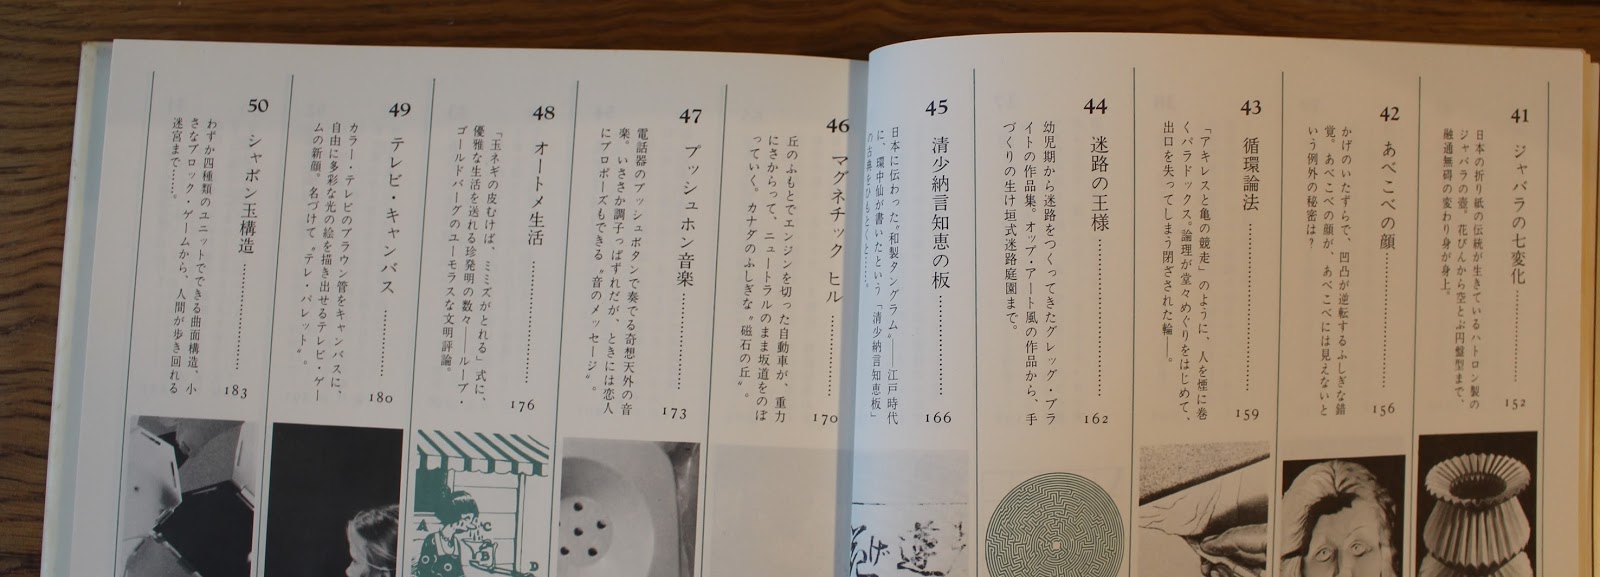 41
ジャバラの七変化
152
日本の折り紙の伝統が生きているハトロン製の
ジャバラの壺。花びんから空とぶ円盤型まで、
融通無碍の変わり身が身上。
42
あべこべの顔
156
かげのいたずらで、凹凸が逆転するふしぎな錯
覚。あべこべの顔が、あべこべには見えないと
いう例外の秘密は?
43
循環論法
159
「アキレスと亀の競走」のように、人を煙に巻
くパラドックス。論理が堂々めぐりをはじめて、
出口を失ってしまう閉ざされた輪——。
44
迷路の王様
162
幼児期から迷路をつくってきたグレッグ・ブラ
イトの作品集。オップ・アート風の作品から、手
づくりの生け垣式迷路庭園まで。
45
清少納言知恵の板
166
日本に伝わった〝和製タングラム〟——江戸時代
に、環中仙が書いたという「清少納言知恵板」
の古典をひもとくと……。
46
マグネチック ヒル
170
丘のふもとでエンジンを切った自動車が、重力
にさからって、ニュートラルのまま坂道をのぼ
っていく。カナダのふしぎな〝磁石の丘〟。
47
プッシュホン音楽
173
電話器のプッシュボタンで奏でる奇想天外の音
楽。いささか調子っぱずれだが、ときには恋人
にプロポーズもできる〝音のメッセージ〟。
48
オートメ生活
176
「玉ネギの皮むけば、ミミズがとれる」式に、
優雅な生活を送れる珍発明の数々——ルーブ・
ゴールドバーグのユーモラスな文明評論。
49
テレビ・キャンバス
180
カラー・テレビのブラウン管をキャンバスに、
自由に多彩な光の絵を描き出せるテレビ・ゲー
ムの新顔。名づけて〝テレ・パレット〟。
50
シャボン玉構造
183
わずか四種類のユニットでできる曲面構造。小
さなブロック・ゲームから、人間が歩き回れる
迷宮まで……。
A
C
B
D